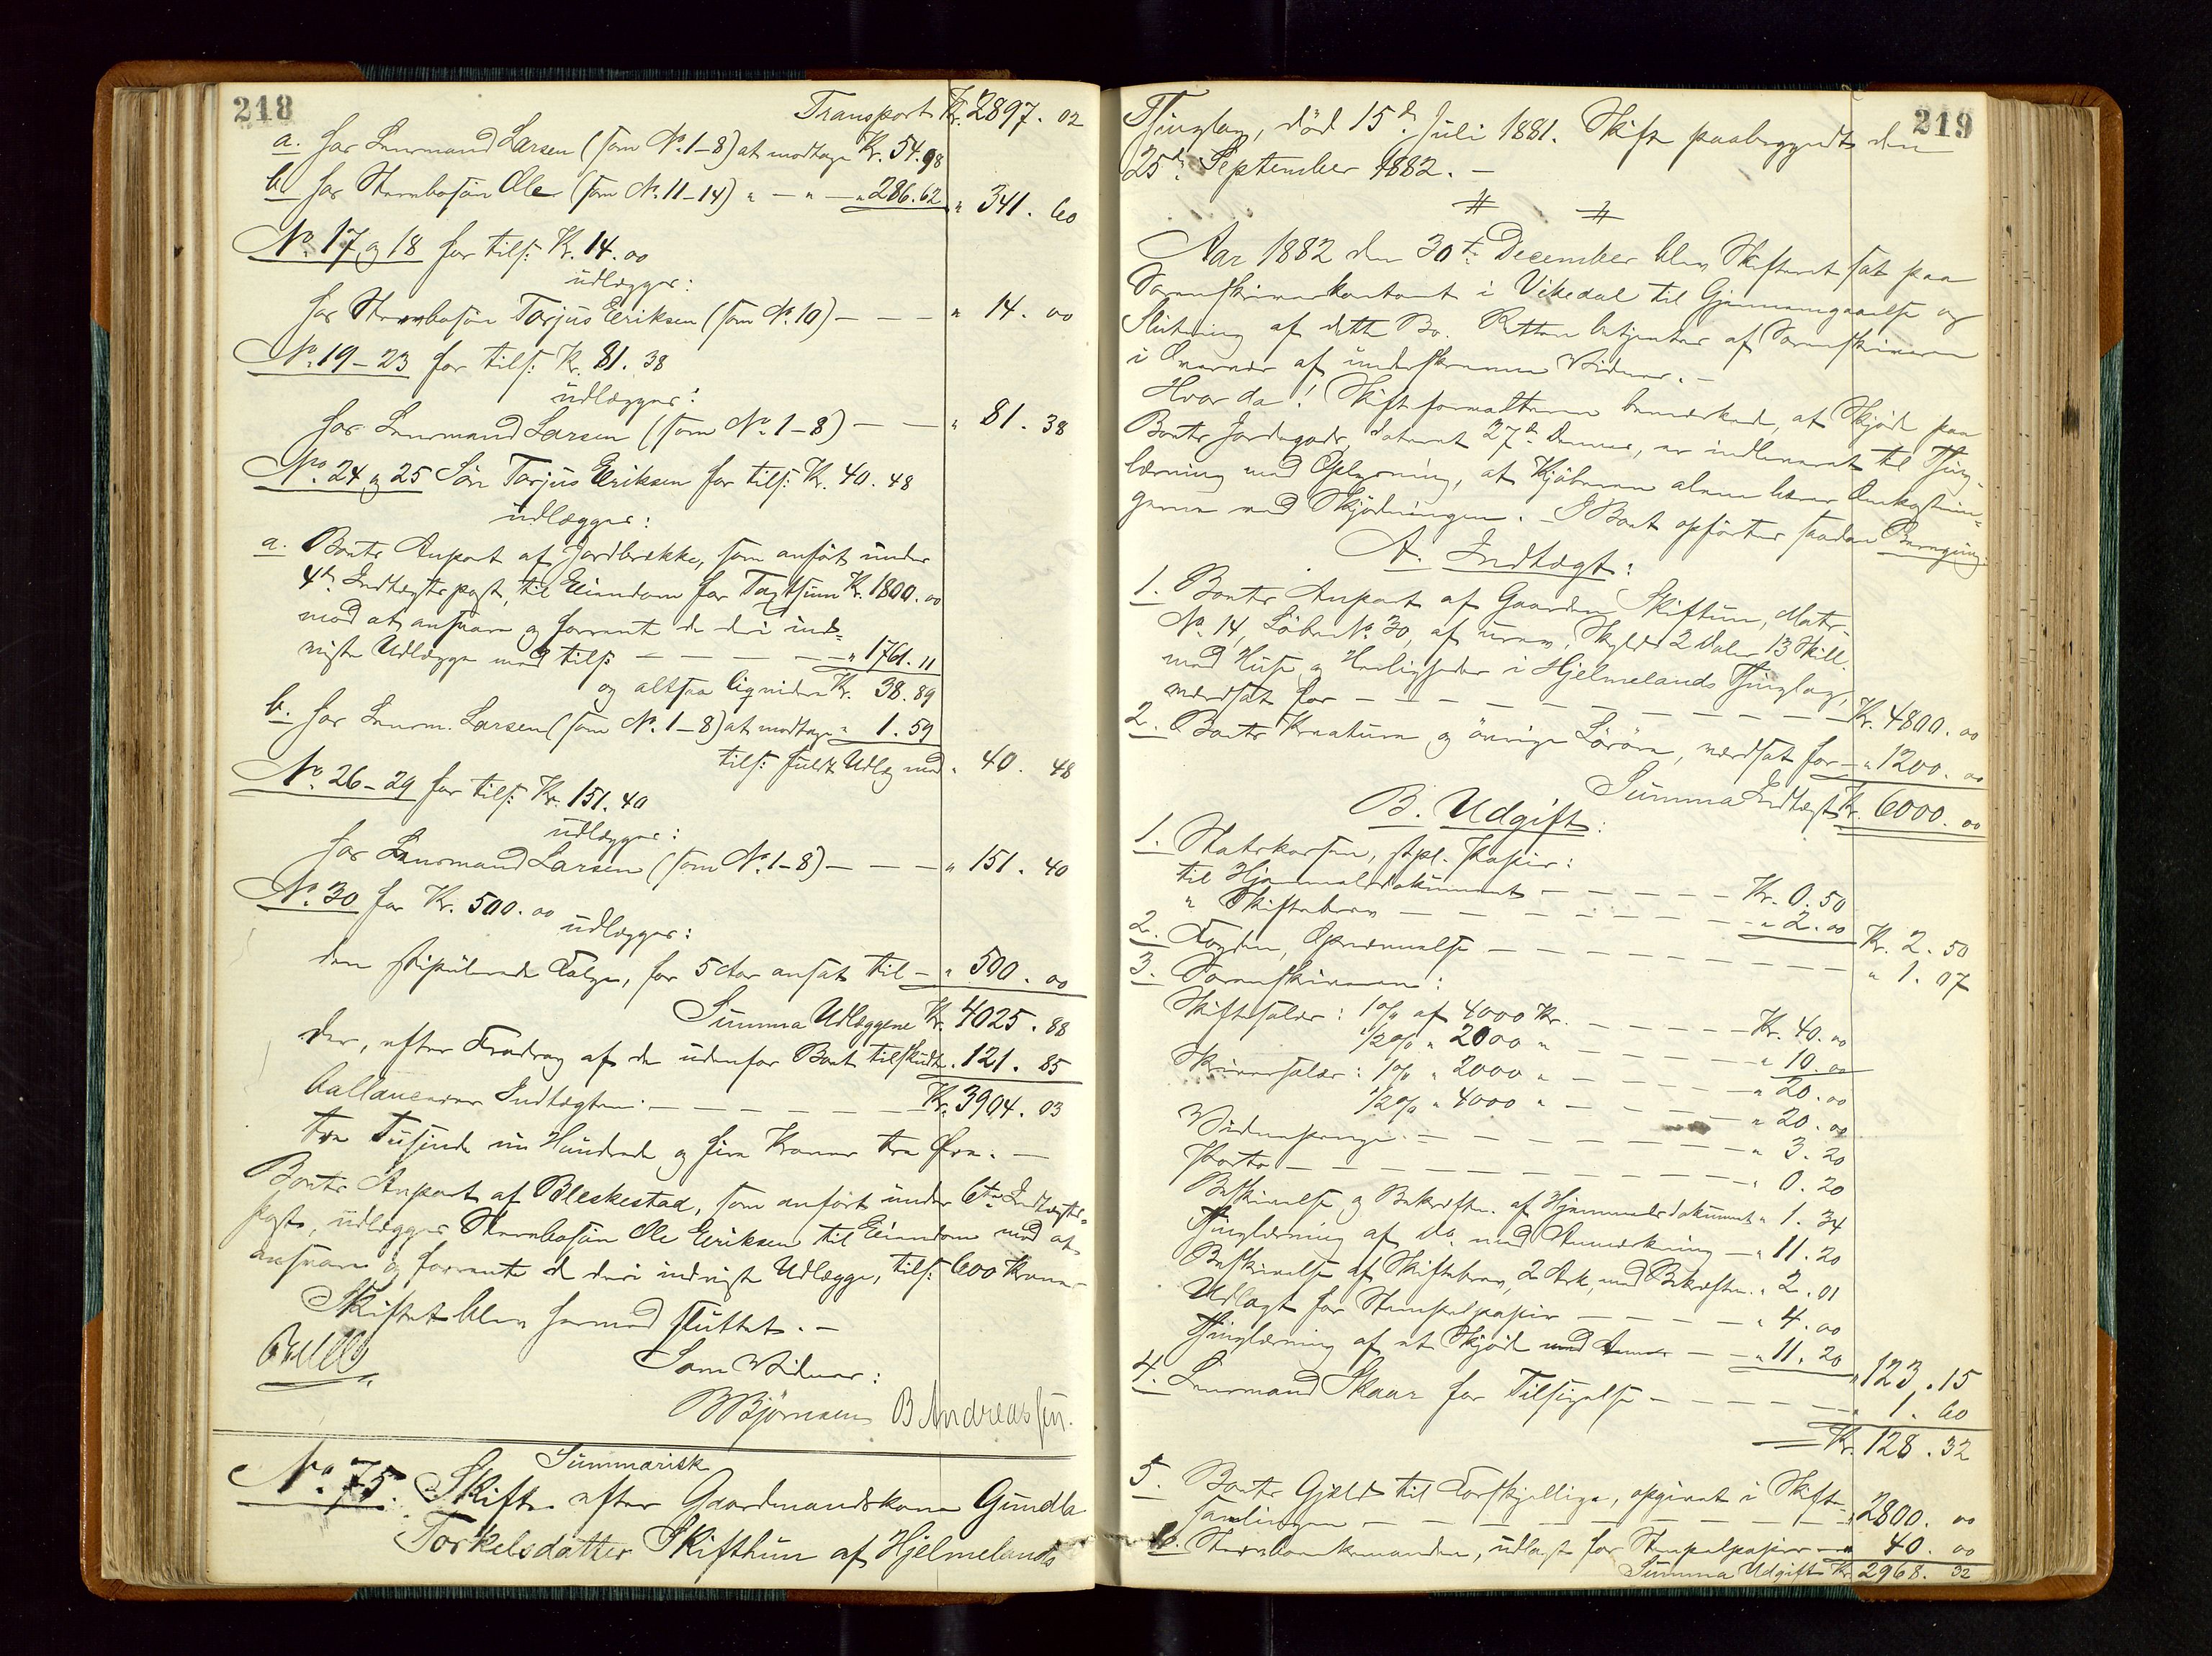 218
Transport Kr. 2897. 02
a. har Lensmand Larsen (som No. 1-8) at modtage Kr. 54.98
b. har Stervbosøn Ole (som No. 11-14) " — " — " 286.62 " 341. 60
No. 17 og 18 for tils: Kr. 14.00
udlægges:
har Stervbosøn Torjus Eriksen (som No. 10) — — — " 14. 00
No. 19-23 for tils: Kr. 81. 38
udlægges:
har Lensmand Larsen (som No. 1-8) — — " 81. 38
No. 24 og 25 Søn Torjus Eriksen for tils: Kr. 40. 48
udlægges:
a. Boets Anpart af Jordbrække, som anført under
4de Indtægtspost, til Eiendom for Taxtsum Kr. 1800. 00
mod at ansvare og forrente de deri ind-
viste Udlægge med tils: — — — — " 1761. 11
og altsaa liqvidere Kr. 38. 89
b. har Lensm. Larsen (som No. 1-8) at modtage " 1. 59
tils: fuldt Udlæg med " 40. 48
No. 26-29 for tils: Kr. 151. 40
udlægges:
har Lensmand Larsen (som No. 1-8) — — — " 151. 40
No. 30 for Kr. 500. 00
udlægges:
den stipulerede Følge, for 5 Aar ansat til — " 500. 00
Summa Udlæggene Kr. 4025. 88
der, efter Fradrag af de udenfor Boet tilskudte " 121. 85
ballancerer Indtægten: — — — — — Kr. 3904. 03
tre Tusinde ni Hundrede og fire Kroner tre Øre. —
Boets Anpart af Bleskestad, som anført under 6te Indtægts-
post, udlægges Stervbosøn Ole Eriksen til Eiendom mod at
ansvare og forrente de deri indviste Udlægge, tils: 600 Kroner
Skiftet blev hermed sluttet. —
Som Vidner:
B Bjørnsen B Andreassen.
Summarisk
No. 75. Skifte efter Gaardmandskone Gundla
Torkelsdatter Skifthun af Hjelmelands
219
Thinglag, død 15de Juli 1881. Skifte paabegyndt den
25de September 1882. —
Aar 1882 den 30te December blev Skifteret sat paa
Sorenskriverkontoret i Vikedal til Gjennemgaaelse og
Slutning af dette Bo. Retten betjentes af Sorenskriveren
i Overvær af underskrevne Vidner. —
Hvor da! Skifteforvalteren bemærkede, at Skjøde paa
Boets Jordegods, dateret 27de Dennes, er indleveret til Thing-
læsning med Oplysning, at Kjøberen alene bærer Omkostnin-
gerne ved Skjødningen. — I Boet opførtes saadan Beregning:
A. Indtægt:
1. Boets Anpart af Gaarden Skiftun, Matr.
No. 14, Løbe No. 30, af urev. Skyld 2 Daler 13 Skill.
med Huse og Herligheder i Hjelmelands Thinglag,
værdsat for — — — — — — — — Kr. 4800. 00
2. Boets Kreature og øvrige Løsøre, værdsat for — " 1200. 00
Summa Indtægt Kr. 6000. 00
B. Udgift:
1. Statskassen, stpl. Papir:
til Hjemmelsdokument — — — — — Kr. 0. 50
" Skiftebrev — — — — — — — " 2. 00 Kr. 2. 50
2. Fogden, Opnævnelse — — — — — — — — " 1. 07
3. Sorenskriveren:
Skiftesalær: 1 o/o af 4000 Kr. — — — — Kr. 40. 00
1/2 o/o " 2000 " — — — — — " 10. 00
Skriversalær: 1 o/o " 2000 " — — — — — " 20. 00
1/2 o/o " 4000 " — — — — — " 20. 00
Vidnepenge. — — — — — — — — " 3. 20
Porto — — — — — — — — — " 0. 20
Beskrivelse og Bekræften. af Hjemmelsdokument " 1. 34
Thinglæsning af do. med Anmærkning — " 11. 20
Beskrivelse af Skiftebrev, 2 Ark, med Bekræften. " 2. 01
Udlagt for Stempelpapir — — — — — " 4. 00
Thinglæsning af et Skjøde med Anmær — — " 11. 20 " 123. 15
4. Lensmand Skaar for Tilsigelse — — — — — " 1. 60
Kr. 128. 32
5. Boets Gjæld til Forskjellige, opgivet i Skifte-
samlingen — — — — — — — — " 2800. 00
6. Stervboenkemanden, udlagt for Stempelpapir — " 40. 00
Summa Udgift Kr. 2968. 32